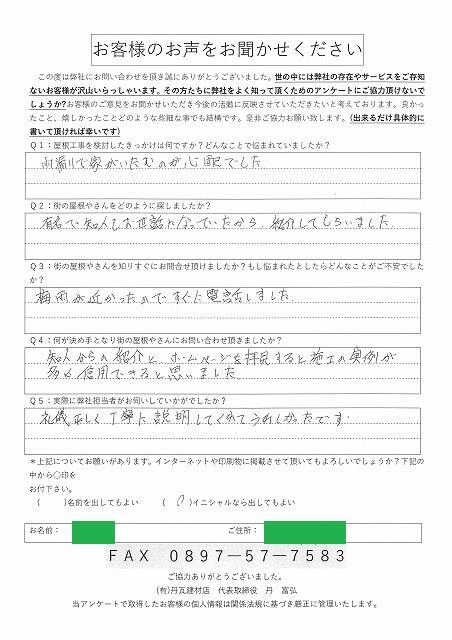 お客様のお声をお聞かせください
この度は弊社にお問い合わせを頂き誠にありがとうございました。世の中には弊社の存在やサービスをご存知
ないお客様が沢山いらっしゃいます。その方たちに弊社をよく知って頂くためのアンケートにご協力頂けないで
しょうか?お客様のご意見をお聞かせいただき今後の活動に反映させていただきたいと考えております。良かっ
たこと、嬉しかったことどのような些細な事でも結構です。是非ご協力お願い致します。(出来るだけ具体的に
書いて頂ければ幸いです)
Q1：屋根工事を検討したきっかけは何ですか？どんなことで悩まれていましたか？
雨漏りで家がいたむのが心配でした
Q2：街の屋根やさんをどのように探しましたか？
有名で知人もお世話になっていたから、紹介してもらいました。
Q3：街の屋根やさんを知りすぐにお問合せ頂けましたか？もし悩まれたとしたらどんなことがご不安でした
か？
梅雨が近かったのですぐに電話しました。
Q4：何が決め手となり街の屋根やさんにお問い合わせ頂きましたか？
知人からの紹介と、ホームページを拝見すると施工の実例が
多く信用できると思いました。
Q5：実際に弊社担当者がお伺いしていかがでしたか？
礼儀正しく丁寧に説明してくれてうれしかったです。
＊上記についてお願いがあります。インターネットや印刷物に掲載させて頂いてもよろしいでしょうか？下記の
中から〇印を
お付下さい。
(　　)名前を出してもよい　　(〇)イニシャルなら出してもよい
お名前：　　ご住所：
FAX　0897－57－7583
ご協力ありがとうございました。
(有)丹瓦建材店　代表取締役　丹　富弘
当アンケートで取得したお客様の個人情報は関係法規に基づき厳正に管理いたします。